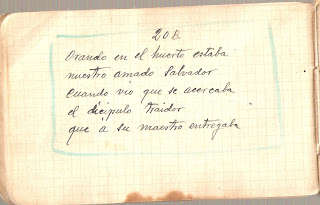 20B
Orando en el huerto estaba
nuestro amado Salvador
cuando vio que se acercaba
el dicipulo traidor
que á su maestro entregaba